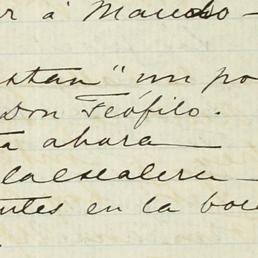 r á Mancho -
stan" un po
Don Teófilo.
ta ahora
la escalera
ntes en la boc